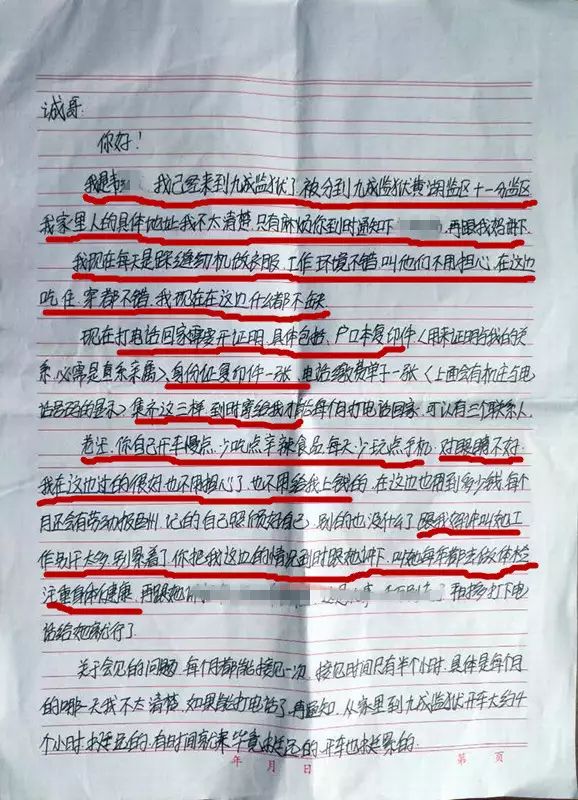 诚哥:
你好!
我是韦 我已经来到九成监狱了,被分到九成监狱黄湖监区十一分监区
我家里人的具体地址我不太清楚,只有麻烦你到时通知下 再跟我爸讲下
我现在每天是踩缝纫机做衣服,工作环境不错叫他们不用担心,在这边
吃、住、穿都不错,我现在在这边什么都不缺
现在打电话回家需要开证明,具体包括,户口本复印件〈用来证明给我的关
系,必需是直系亲属〉身份证复印件一张,电话缴费单子一张〈上面会有机主与电
话号码的显示〉集齐这三样,到时寄给我才给每个月打电话回家,可以有三个联系人
老王,你自己开车慢点,少吃点辛辣食品,每天少玩点手机,对眼睛不好
我在这边过的很好,也不用担心了,也不用给我上钱的,在这边也用到多少钱,每个
月还会有劳动报酬,记的自己照顾好自己,别的也没什么了,跟我 讲叫她工
作别干太多,别累着了,你把我这边的情况到时跟她讲下,叫她每年都去做体检
注重身体健康,再跟她 和 打下电
话给她就行了
关于会见的问题,每个月都能接见一次,接见时间只有半个小时,具体是每个月
的哪一天我不太清楚,如果能打电话了,再通知,从家里到九成监狱开车大约4
个小时,也挺远的,有时间就来,毕竟挺远的,开车也挺累的.
年 月 日 第 页